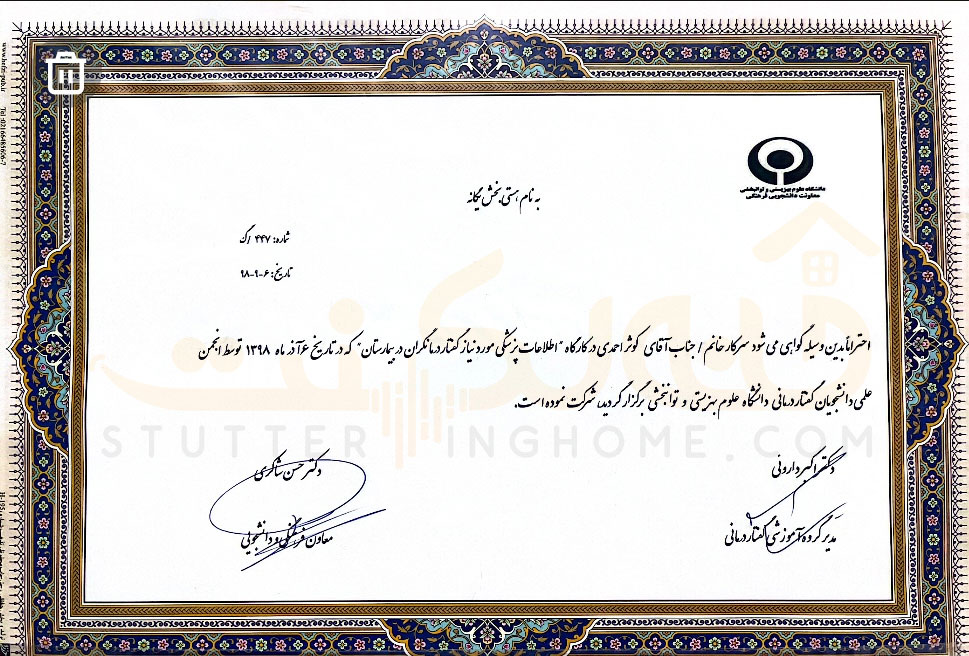 دانشگاه علوم بهزیستی و توانبخشی
معاونت دانشجویی فرهنگی
به نام هستی بخش یگانه
شماره: ۴۴۷ /ک
تاریخ: ۶-۹-۹۸
احتراما بدین وسیله گواهی می شود سرکار خانم / جناب آقای کوثر احمدی در کارگاه "اطلاعات پزشکی مورد نیاز گفتار درمانگران در بیمارستان" که در تاریخ ۶ آذر ماه ۱۳۹۸ توسط انجمن
علمی دانشجویان گفتار درمانی دانشگاه علوم بهزیستی و توانبخشی برگزار گردید، شرکت نموده است.
STUTTERINGHOME.COM
دکتر اکبر دارونی
مدیر گروه آموزشی گفتار درمانی
دکتر حسن شاکری
معاون فرهنگی و دانشجویی